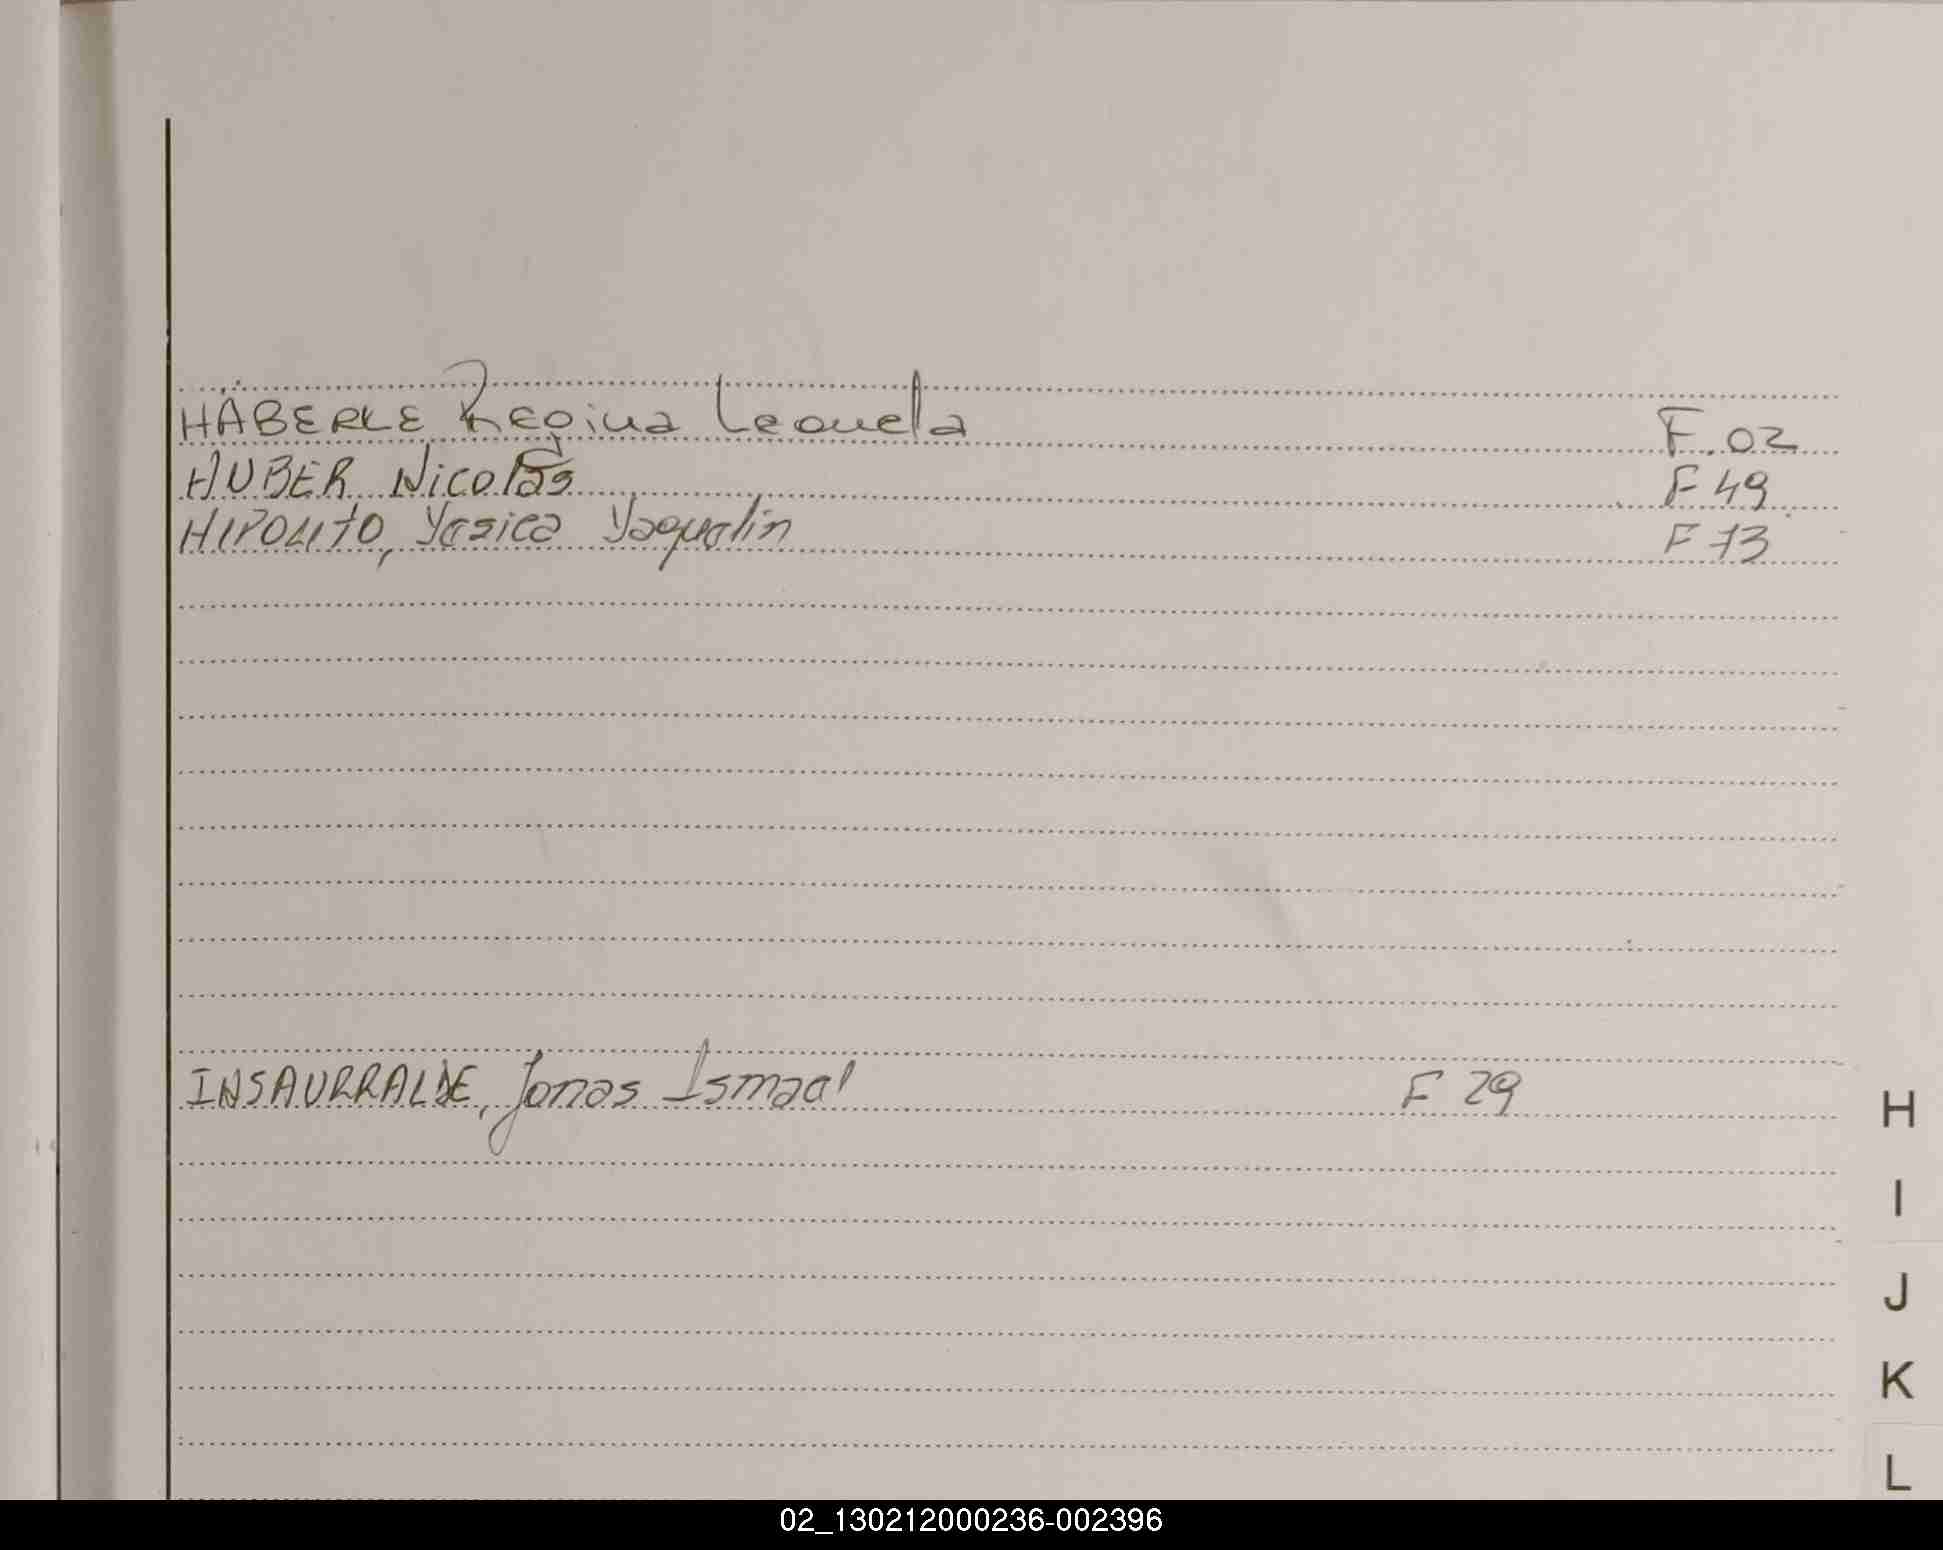 HÄBERLE Regina Leonela F.02
HUBER Nicolás F 49
HIPOLITO, Yesica Yaquelin F 73
INSAURRALDE, Jonas Ismael F 29
H
I
J
K
L
02_130212000236-002396